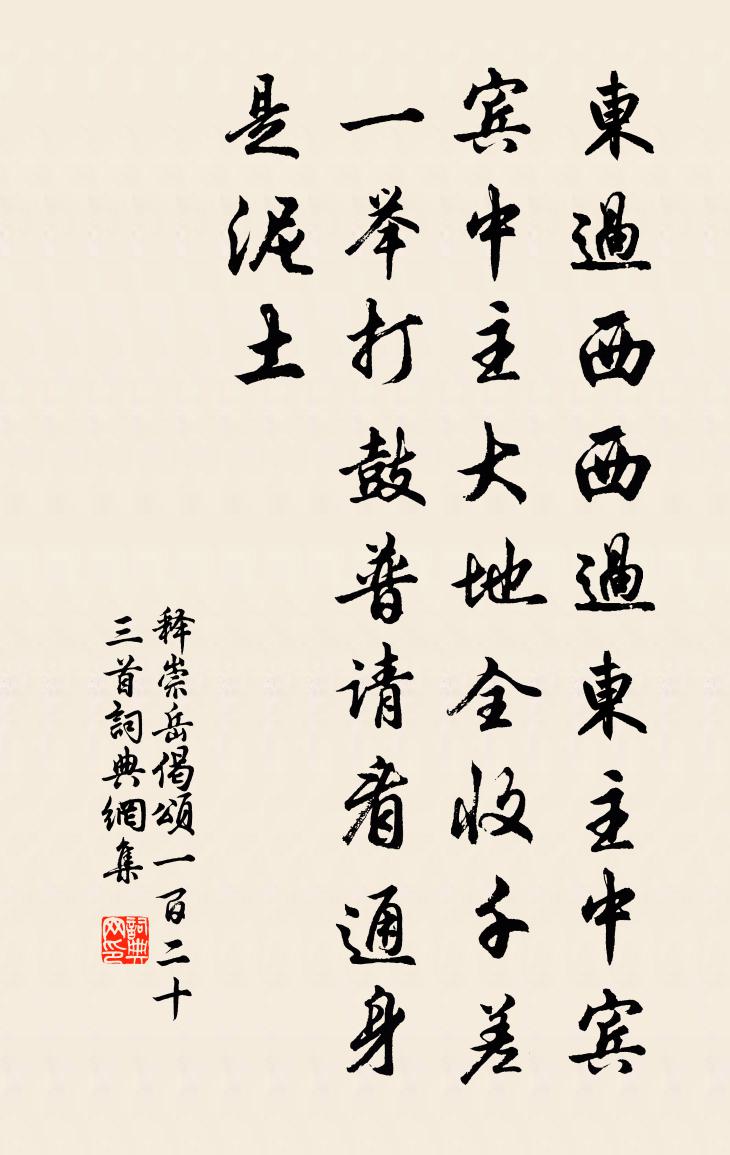 東過西西過東主中宾
宾中主大地全收千差
一举打鼓普请看通身
是泥土
释崇岳偈頌一百二十
三首詞典網集
詞典
网印